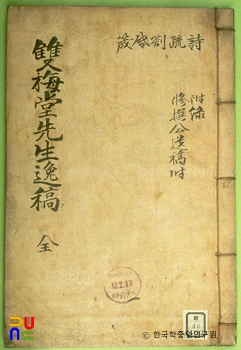 詩疏劄啓箴
附錄
修撰公逸稿附
雙梅堂先生逸稿 全
12.2.13
46
©한국학중앙연구원